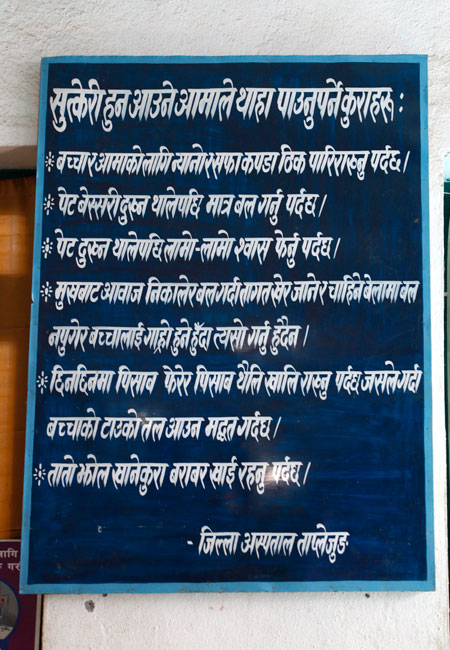 सुत्केरी हुन आउने आमाले थाहा पाउनुपर्ने कुराहरू :
* बच्चा र आमाको लागि न्यानो र सफा कपडा ठिक पारिराख्नु पर्दछ।
* पेट बेस्सरी दुख्न थालेपछि मात्र बल गर्नु पर्दछ।
* पेट दुख्न थालेपछि लामो-लामो श्वास फेर्नु पर्दछ।
* मुखबाट आवाज निकालेर बल गर्दा तागत खेर जाने र चाहिने बेलामा बल
नपुगेर बच्चालाई गाह्रो हुने हुँदा त्यसो गर्नु हुँदैन।
* छिनछिनमा पिसाब फेरेर पिसाब थैलि खालि राख्नु पर्दछ जसले गर्दा
बच्चाको टाउको तल आउन मद्धत गर्दछ।
* तातो झोल खानेकुरा बराबर खाई रहनु पर्दछ।
- जिल्ला अस्पताल ताप्लेजुङ